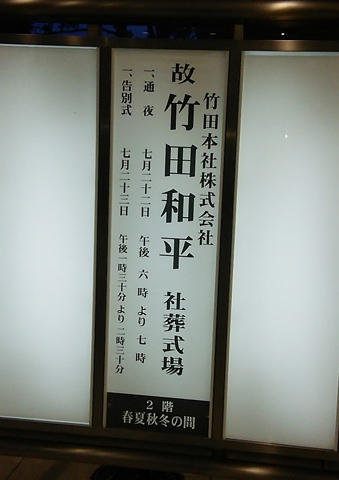 竹田本社株式会社
故 竹田和平 社葬式場
一、通夜 七月二十二日 午後 六時より七時
一、告別式 七月二十三日 午後一時三十分より二時三十分
2階
春夏秋冬の間